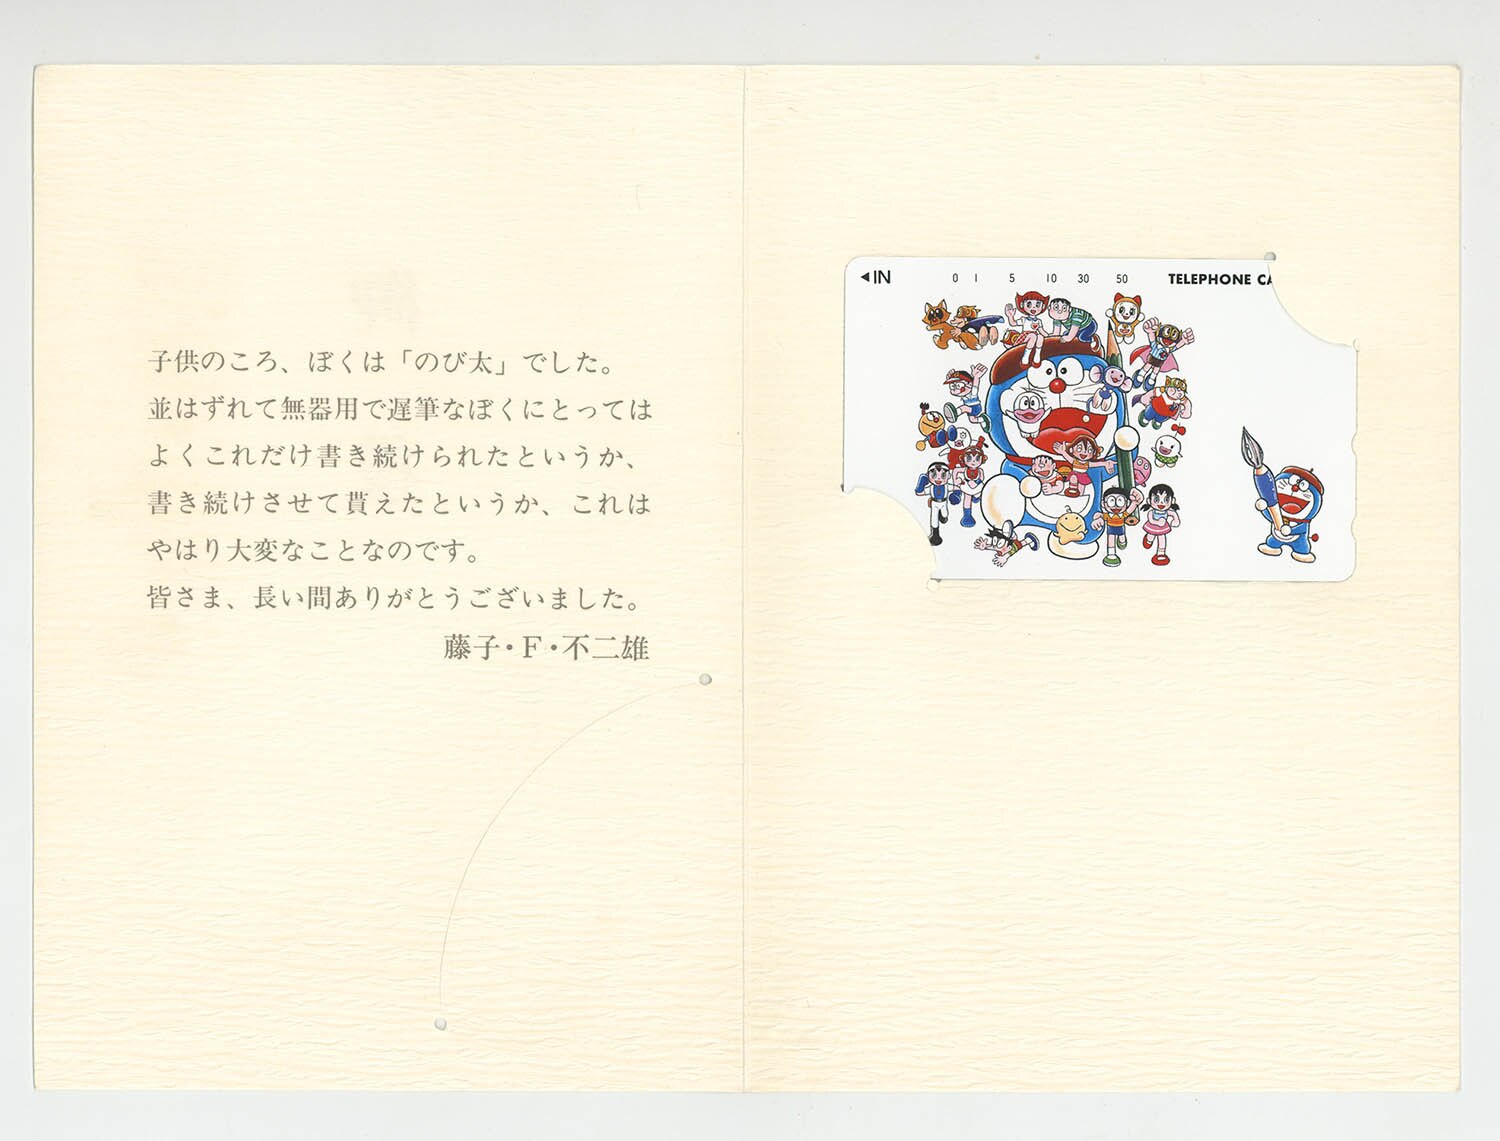 子供のころ、ぼくは「のび太」でした。
並はずれて無器用で遅筆なぼくにとっては
よくこれだけ書き続けられたというか、
書き続けさせて貰えたというか、これは
やはり大変なことなのです。
皆さま、長い間ありがとうございました。
藤子・F・不二雄
◀IN 0 1 5 10 30 50 TELEPHONE CA